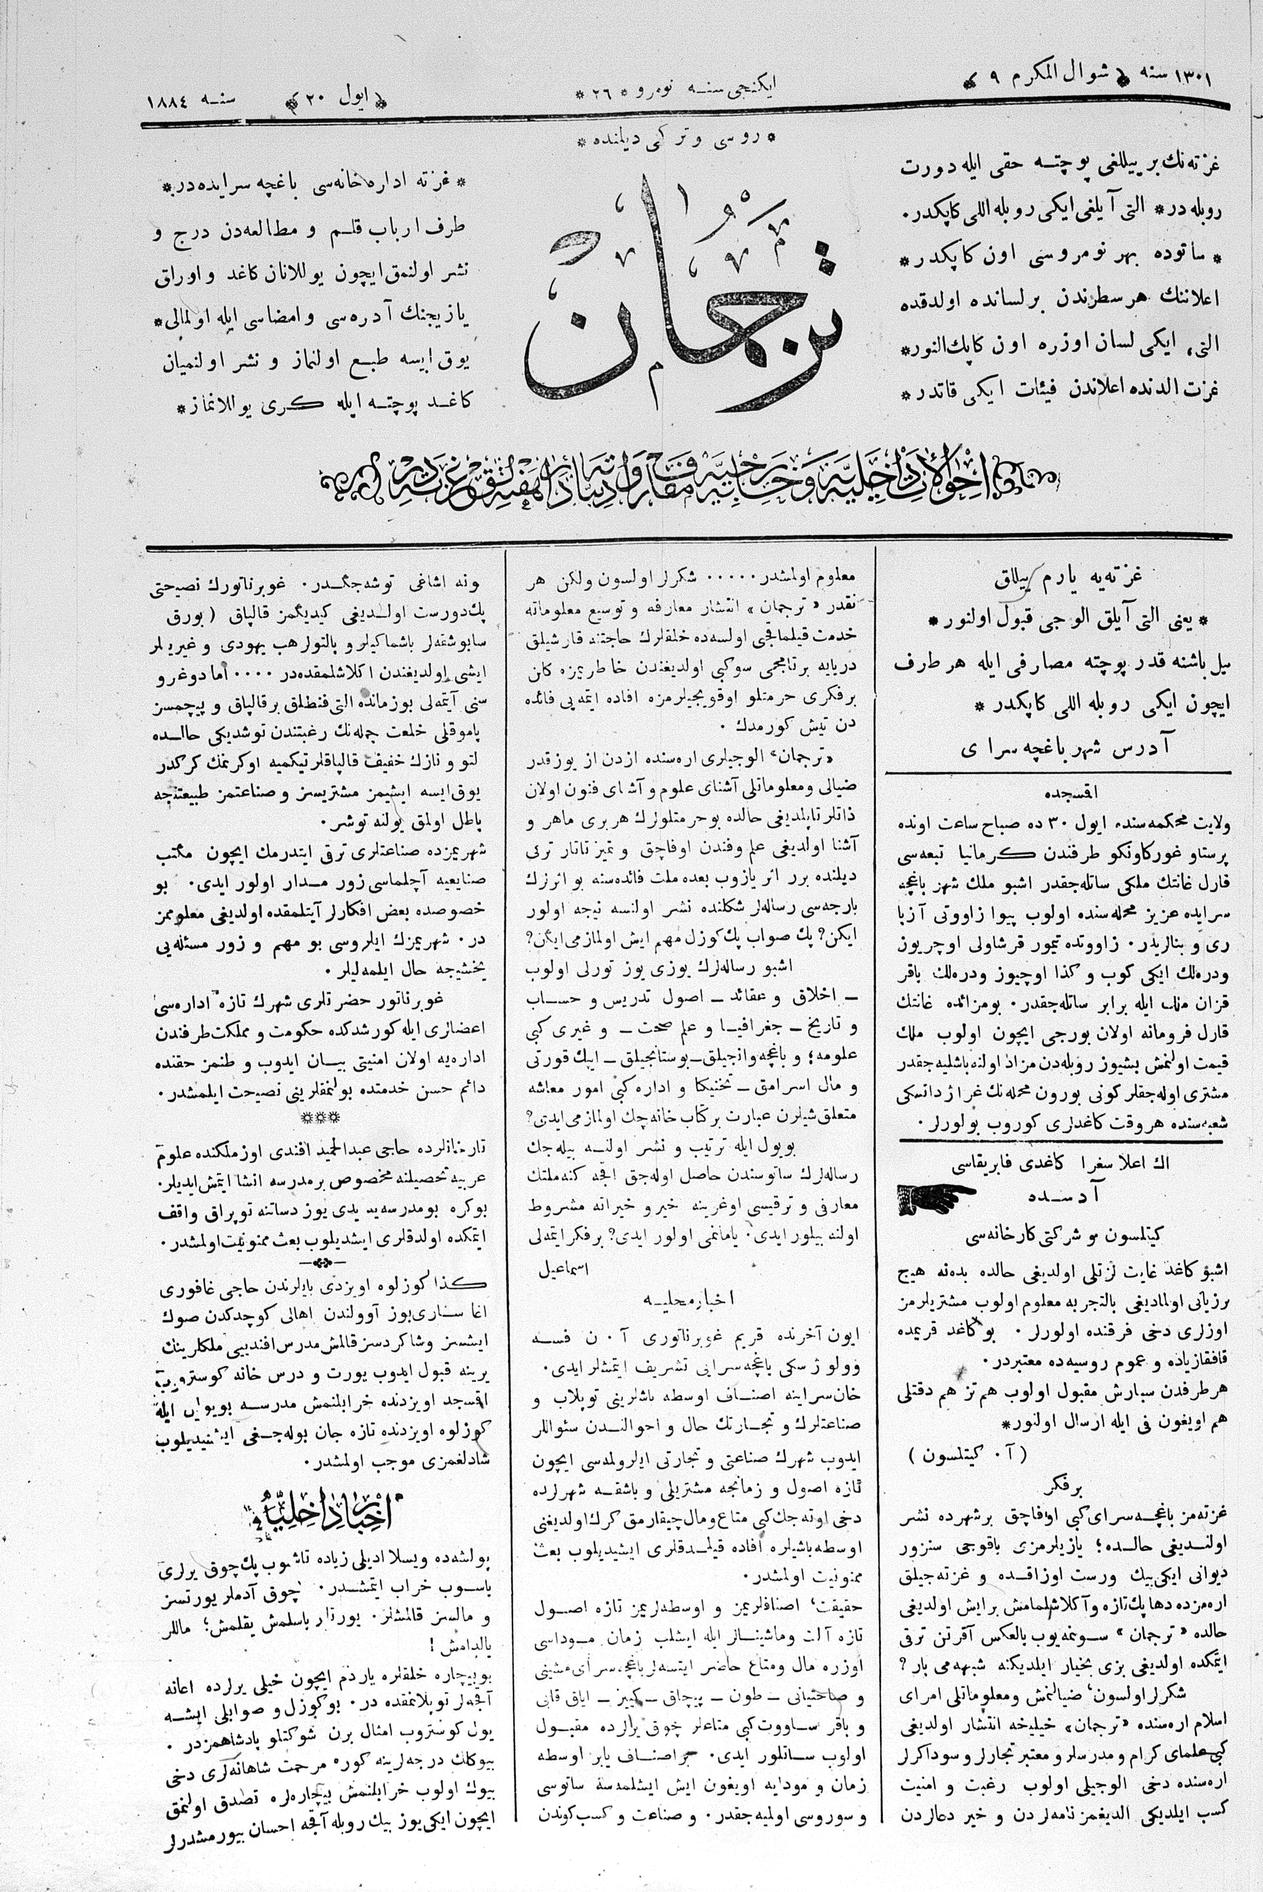 ١٣٠١ سنه شوال المكرم ٩
ايكنجى سنه نومرو ٢٦
ايول ٢٠ سنه ١٨٨٤
روسى و تركى ديلنده
غزته‌نك بر ييللغى پوچته حقى ايله دورت
روبله در * التى آيلغى ايكى روبله اللى كاپكدر.
* ساتوده بهر نومروسى اون كاپكدر *
اعلاننك هر سطرندن بر لسانده اولدقده
التى، ايكى لسان اوزره اون كاپك النور *
غزت الدنده اعلاندن فيئات ايكى قاتدر *
ترجمان
* غزته اداره خانه‌سى باغچه سرايده‌در *
طرف ارباب قلم و مطالعه‌دن درج و
نشر اولنمق ايچون يوللانان كاغد و اوراق
يازيجينك آدره‌سى و امضاسى ايله اولمالى *
يوق ايسه طبع اولنماز و نشر اولنميان
كاغد پوچته ايله كرى يوللانماز *
غزته‌يه يارم ييللق
* يعنى التى آيلق الوجى قبول اولنور *
ييل باشنه قدر پوچته مصارفى ايله هر طرف
ايچون ايكى روبله اللى كاپكدر *
آدرس شهر باغچه سراى
اقسجده
ولايت محكمه‌سنده ايول ٣٠ ده صباح ساعت اونده
پرستاو غوركاونكو طرفندن كرمانيا تبعه‌سى
قارل غانتك ملكى ساتله‌جقدر اشبو ملك شهر باغچه
سرايده عزيز محله‌سنده اولوب پيوا زاووتى آزبا
رى و بنالريدر. زاووتده تيمور قرشاولى اوچريوز
ودره‌لك ايكى كوب و كذا اوچيوز ودره‌لك باقر
قزان ملك ايله برابر ساتله‌جقدر. بومزائده غانتك
قارل فرومانه اولان بورجى ايچون اولوب ملك
قيمت اولنمش بشيوز روبله‌دن مزاد اولنه باشليه‌جقدر
مشترى اوله‌جقلر كونى بورون محله‌نك غراژدانسكى
شعبه‌سنده هر وقت كاغدلرى كوروب بولورلر.
اك اعلا سغرا كاغدى فابريقاسى
آدسده
كيتلسون و شركتى كارخانه‌سى
اشبو كاغد غايت لزتلى اولديغى حالده بدنه هيچ
برزيانى اولماديغى بالتجربه معلوم اولوب مشتريلرمز
اوزلرى دخى فرقنده اولورلر. بوكاغد قريمده
قافقازياده و عموم روسيه‌ده معتبردر.
هر طرفدن سپارش مقبول اولوب هم تز هم دقتلى
هم اويغون فى ايله ارسال اولنور *
( آ. كيتلسون )
بر فكر
غزته‌مز باغچه‌سراى كبى اوفاچق بر شهرده نشر
اولنديغى حالده؛ يازيلرمزى باقوجى سنزور
ديوانى ايكى بيك ورست اوزاقده و غزته‌جيلق
اره‌مزده دها پك تازه و آكلاشلمامش بر ايش اولديغى
حالده «ترجمان» سونمه‌يوب بالعكس آقرتن ترقى
ايتمكده اولديغى بزى بختيار ايلديكنه شبهه‌مى بار؟
شكرلر اولسون، ضيالنمش و معلوماتلى امراى
اسلام اره‌سنده «ترجمان» خيليخه انتشار اولديغى
كبى علماى كرام و مدرسلر و معتبر تجارلر و سوداكرلر
اره‌سنده دخى الوجيلى اولوب رغبت و امنيت
كسب ايلديكى الديغمز نامه‌لردن و خير دعالردن
معلوم اولمشدر..... شكرلر اولسون ولكن هر
نقدر «ترجمان» انتشار معارفه و توسيع معلوماته
خدمت قيلماقجى اولسه‌ده خلقلرك حاجتنه قارشيلق
دريايه برتامجى سوكبى اولديغندن خاطريمزه كلن
برفكرى حرمتلو اوقويجيلرمزه افاده ايتمه‌يى فائده
دن تيش كورمدك.
«ترجمان» الوجيلرى اره‌سنده ازدن از يوز قدر
ضيالى و معلوماتلى آشناى علوم و آشناى فنون اولان
ذاتلر تاپلديغى حالده بو حرمتلولرك هر برى ماهر و
آشنا اولديغى علم و فندن اوفاچق و تميز تاتار تركى
ديلنده برر اثر يازوب بعده ملت فائده‌سنه بو اثرلرك
بارجه‌سى رساله‌لر شكلنده نشر اولنسه نيجه اولور
ايكن؟ پك صواب پك كوزل مهم ايش اولمازمى ايكن؟
اشبو رساله‌لرك يوزى يوز تورلى اولوب
ــ اخلاق و عقائد ــ اصول تدريس و حساب
و تاريخ ــ جغرافيا و علم صحت ــ و غيرى كبى
علومه؛ و باغچه‌وانجيلق ــ بوستانجيلق ــ ايپك قورتى
و مال اسرامق ــ تخنيكا و اداره كبى امور معاشه
متعلق شيلرن عبارت بر كتاب خانه‌چك اولمازمى ايدى؟
بو يول ايله ترتيب و نشر اولنه بيله‌جك
رساله‌لرك ساتوسندن حاصل اوله‌جق اقچه كنه ملتك
معارفى و ترقيسى اوغرينه خير و خيراته مشروط
اولنه بيلور ايدى. يامانمى اولور ايدى؟ بر فكر ايتمه‌لى
اسماعيل
اخبار محليه
ايون آخرنده قريم غوبرناتورى آ. ن فسه
وولوژسكى باغچه‌سرايى تشريف ايتمشلر ايدى.
خان سراينه اصناف اوسطه باشلرينى توپلاب و
صناعتلرك و تجارتك حال و احوالندن سئواللر
ايدوب شهرك صناعتى و تجارتى ايلرولمه‌سى ايچون
تازه اصول و زمانجه مشتريلى و باشقه شهرلرده
دخى اوته‌جك كبى متاع و مال چيقارمق كرك اولديغنى
اوسطه باشيلره افاده قيلمدقلرى ايشيديلوب بعث
ممنونيت اولمشدر.
حقيقت، اصنافلريمز و اوسطه‌لريمز تازه اصول
تازه آلت و ماشينالر ايله ايشلب زمان موداسى
اوزره مال و متاع حاضر ايتسه‌لر باغچه‌سراى مشينى
و صاختيانى ــ طون ــ پيچاق ــ كييز ــ اياق قابى
و باقر ساووت كبى متاعلر چوق يرلرده مقبول
اولوب ساتلور ايدى. هر اصناف يابر اوسطه
زمان و مودايه اويغون ايش ايشلمه‌سه ساتوسى
و سوروسى اولميه‌جقدر. و صناعت و كسب كوندن
ونه اشاغى توشه‌جكدر. غوبرناتورك نصيحتى
پك دورست اولديغى كيديگمز قالپاق (بورق
سابوشقه‌لر باشماكيلر و پالتولر هب يهودى و غيريلر
ايشى اولديغندن اكلاشلمقده‌در .... اما دوغرو
سنى آيتمه‌لى بوزمانده التى فنطلق بر قالپاق و پيچمسز
پاموقلى خلعت جمله‌نك رغبتندن توشديكى حالده
لتو و نازك خفيف قالپاقلر تيكميه اوكرنمك كركدر
يوق ايسه ايشيمز مشتريسز و صناعتمز طبيعتجه
باطل اولمق يولنه توشر.
شهريمزده صناعتلرى ترقى ايتدرمك ايچون مكتب
صنايعيه آچلماسى زور مدار اولور ايدى. بو
خصوصده بعض افكارلر آيتلمقده اولديغى معلوممز
در. شهريمزك ايلروسى بو مهم و زور مسئله‌يى
يخشيجه حال ايلمه‌ليلر.
غوبرناتور حضرتلرى شهرك تازه اداره‌سى
اعضالرى ايله كورشدكده حكومت و مملكت طرفندن
اداره‌يه اولان امنيتى بيان ايدوب و طنمز حقنده
دائم حسن خدمتده بولنمقلرينى نصيحت ايلمشدر.
***
تارخانلرده حاجى عبدالحميد افندى اوز ملكنده علوم
عربيه تحصيلنه مخصوص بر مدرسه انشا ايتمش ايديلر.
بوكره بو مدرسه‌يه يدى يوز دساتنه توپراق واقف
ايتمكده اولدقلرى ايشديلوب بعث ممنونيت اولمشدر.
كذا كوزلوه اويزدى بايلرندن حاجى غافورى
اغا سارى يوز آوولندن اهالى كوچدكدن صوك
ايشسز و شاكردسز قالمش مدرس افندييى ملكلرينك
يرينه قبول ايدوب يورت و درس خانه كوستروب
اقسجد اويزدنده خرابلنمش مدرسه بويولى ايله
كوزلوه اويزدنده تازه جان بوله‌جغى ايشيديلوب
شادلغمزى موجب اولمشدر.
اخبار داخليه
پولشه‌ده ويسلا اديلى زياده تاشوب پك چوق يرلرى
باسوب خراب ايتمشدر. چوق آدملر يورتسز
و مالسز قالمشلر. يورتلر باسلمش يقلمش؛ ماللر
يالدامش!
بو بيچاره خلقلره ياردم ايچون خيلى يرلرده اعانه
آقچه‌لر توپلانمقده در. بو كوزل و صوابلى ايشه
يول كوستروب امثال برن شوكتلو پادشاهمزدر.
بيوكلك درجه‌لرينه كوره مرحمت شاهانه‌لرى دخى
بيوك اولوب خرابلنمش بيچاره‌لره تصدق اولنمق
ايچون ايكى يوز بيك روبله آقچه احسان بيورمشدرلر